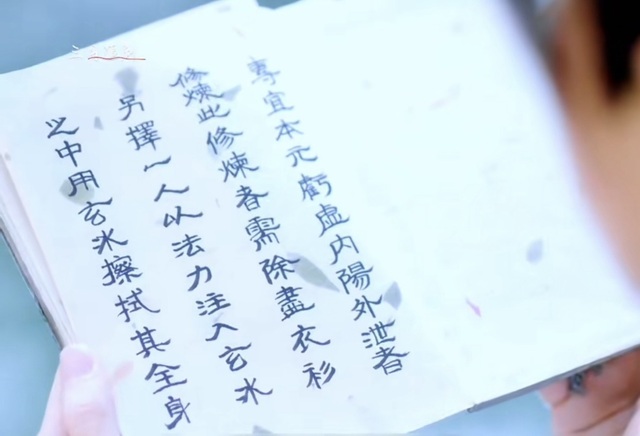 專宜本元虧虛内陽外泄者
修煉此修煉者需除盡衣衫
另擇一人以法力注入玄水
之中用玄水擦拭其全身